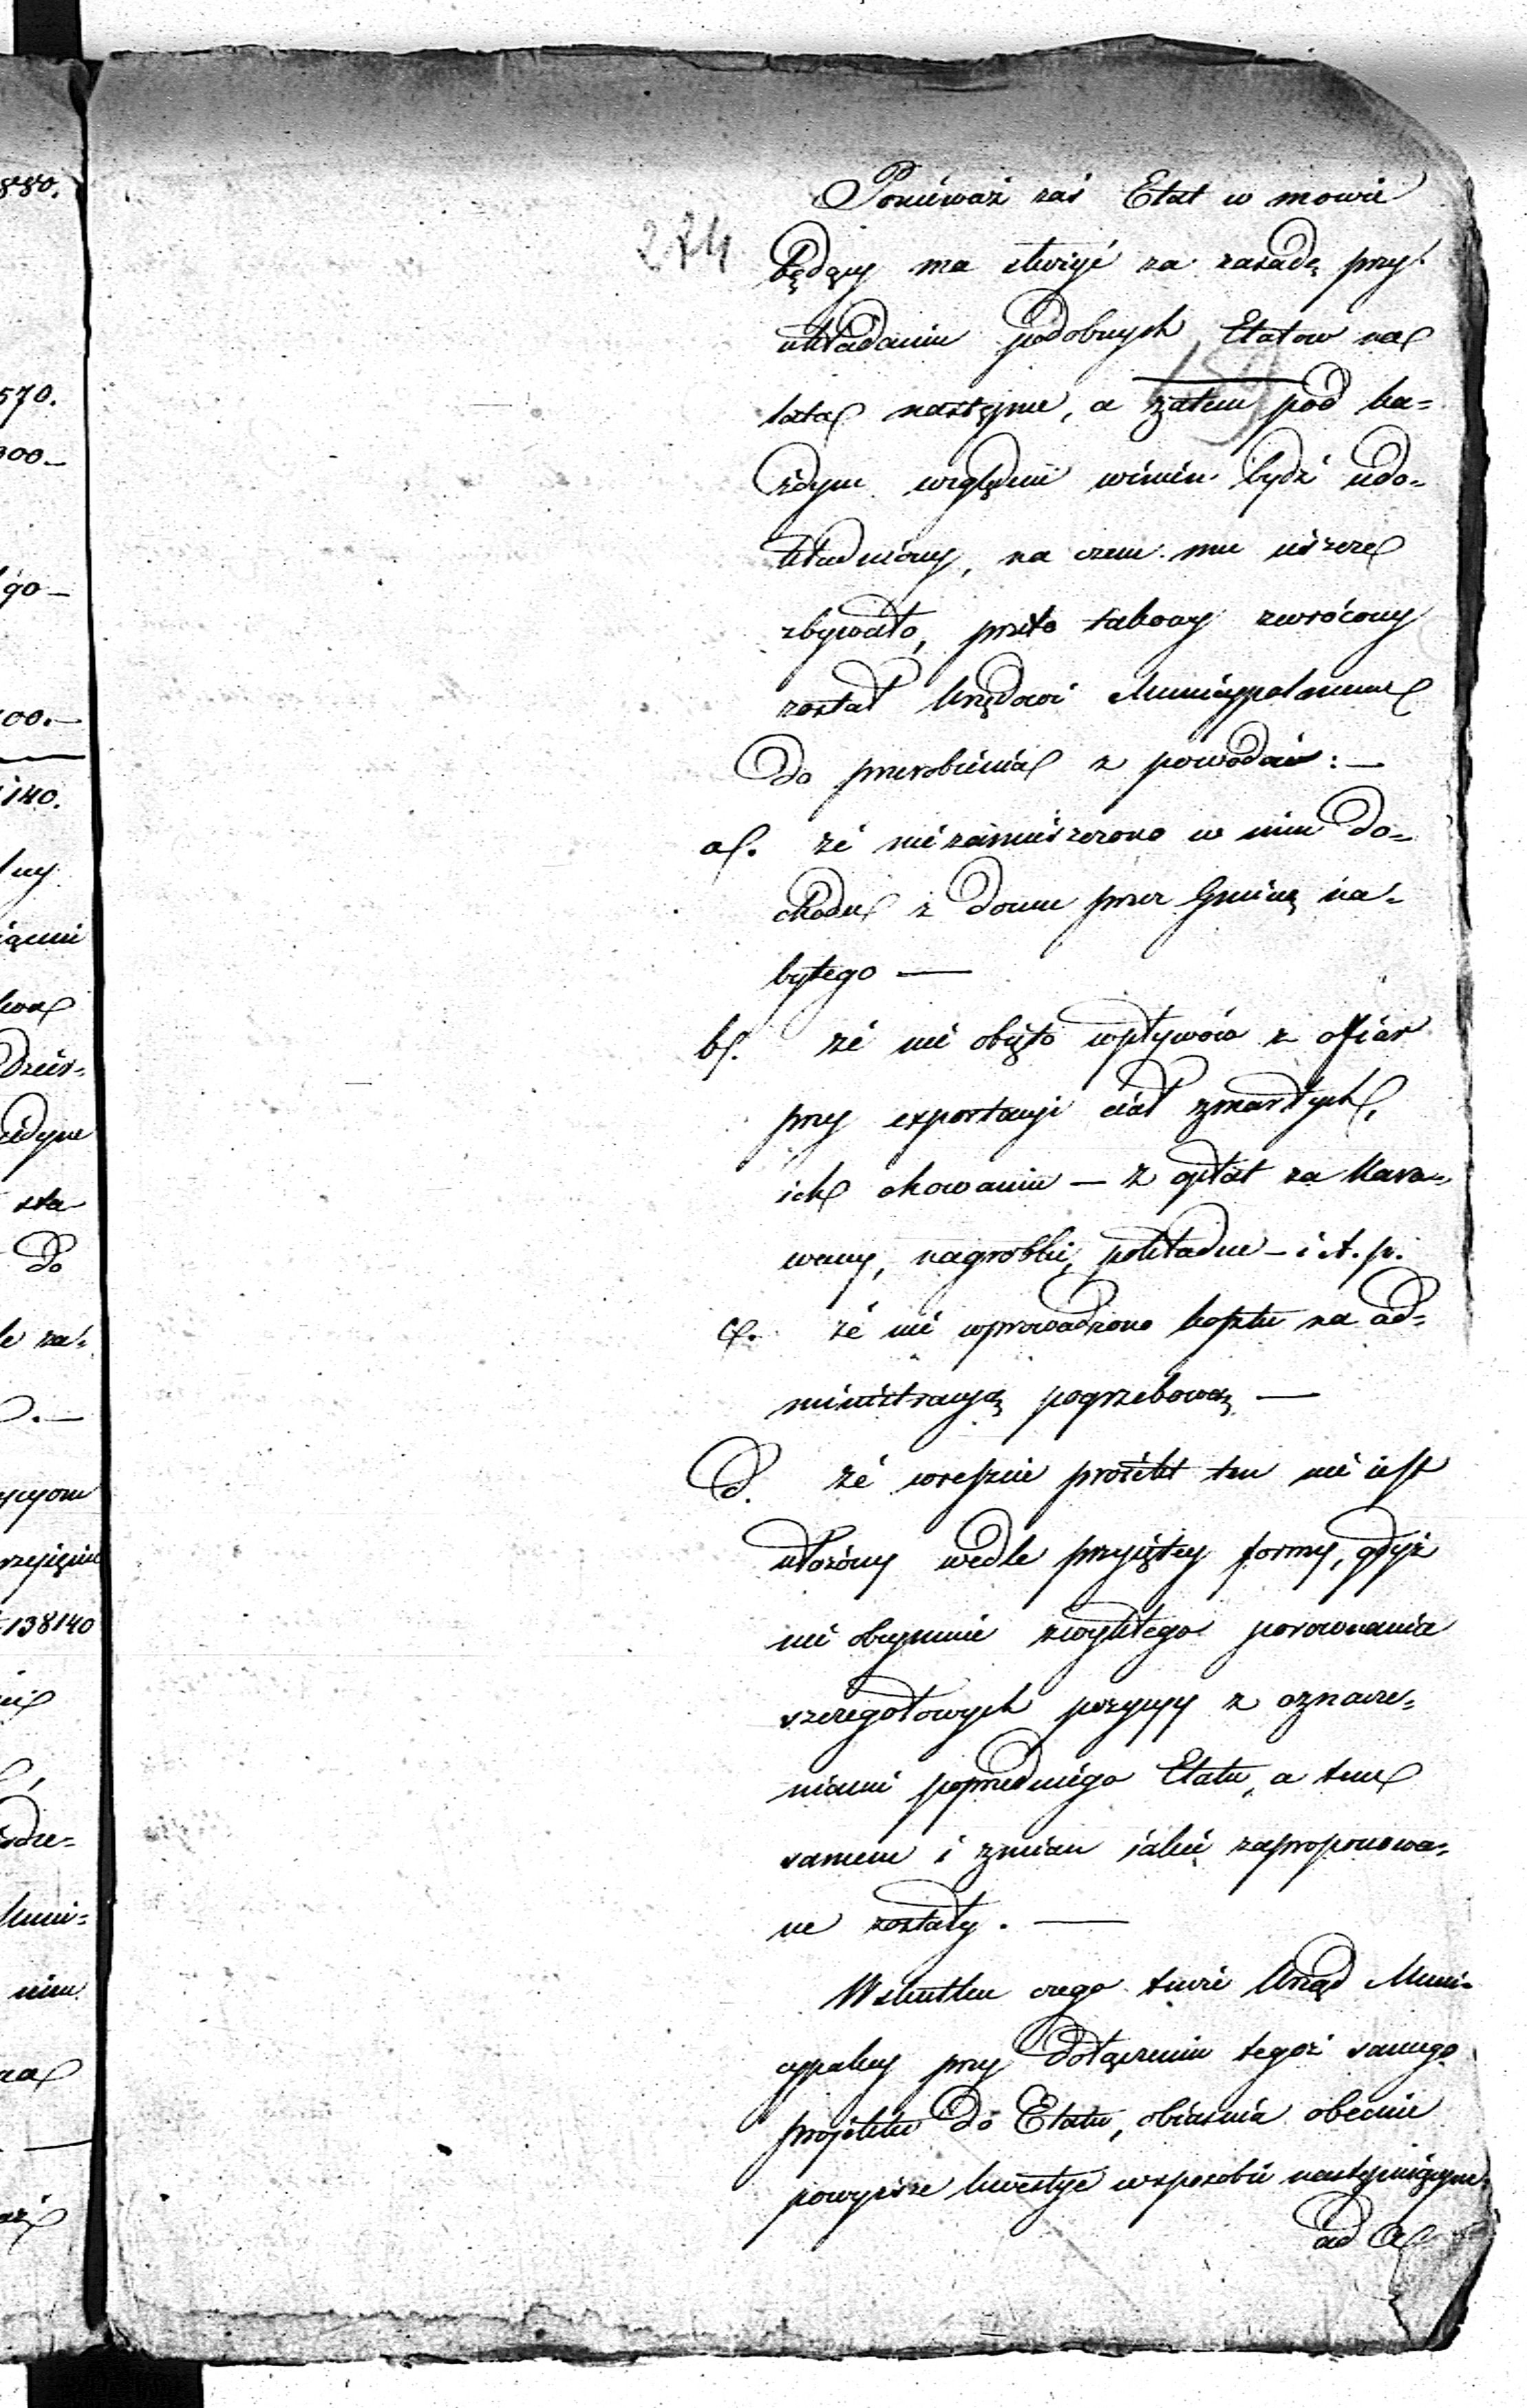 274
159
Poniéważ zaś Etat w mowie
będący ma słuzyć za zasadę przy
układaniu podobnych Etatow na
lata następne, a zatem pod ka=
żdym względem winien bydź udo=
kładniony, na czem mu ieszcze
zbywało, przeto takowy zwrócony
został Urzędowi Municypalnemu
do przerobienia z powodów: —
a/. że nie zamieszczono w nim do=
chodu z domu przez Gminę na=
bytego —
b/. że nie obięto wpływów z ofiar
przy exportacyi ciał zmarłych,
ich chowaniu — z opłat za Kara=
wany, nagrobki, pokładne — i t. p.
c/. że nie wprowadzono kosztu na ad=
ministracyą pogrzebową —
d. że wreszcie proiekt ten nie iest
ułożony wedle przyiętey formy, gdyż
nie obeymuie zwykłego porownania
szczegołowych pozycyy z oznacze=
niami poprzedniego Etatu, a tem
samem i zmian iakie zaproponowa=
ne zostały. —
Wskutku czego tenże Urząd Muni=
cypalny przy dołączeniu tegoż samego
projektu do Etatu, obiasnia obecnie
powyższe kwestye w sposobie następuiącym
ad a/
880.
570.
000 —
90 —
00. —
140.
ny
iącemi
dzier=
sta
do
le za=
138140
Muni=
nim